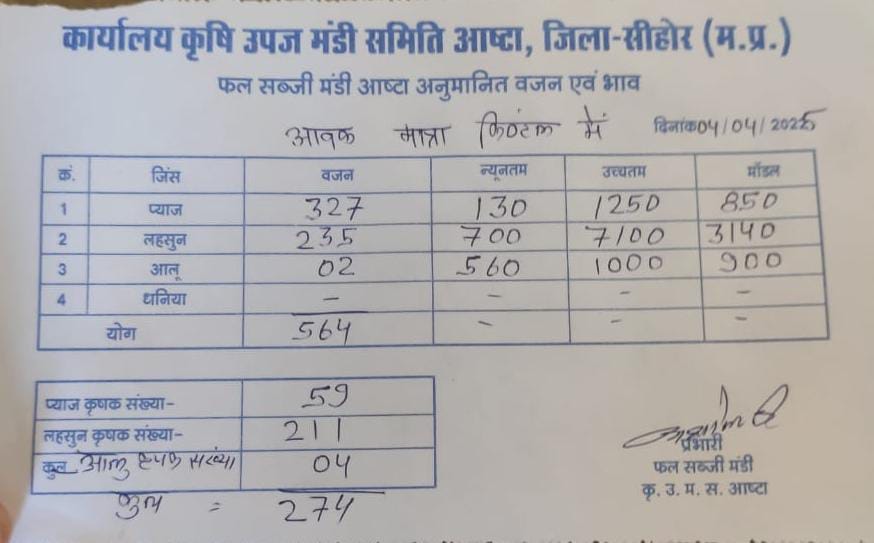 कार्यालय कृषि उपज मंडी समिति आष्टा, जिला-सीहोर (म.प्र.)
फल सब्जी मंडी आष्टा अनुमानित वजन एवं भाव
आवक मात्रा क्विंटल में दिनांक 04/04/2025
क्रं. जिंस वजन न्यूनतम उच्चतम मॉडल
1 प्याज 327 130 1250 850
2 लहसुन 235 700 7100 3140
3 आलू 02 560 1000 900
4 धनिया - - - -
योग 564 - - -
प्याज कृषक संख्या- 59
लहसुन कृषक संख्या- 211
कुल आलु कृषक संख्या 04
कुल = 274
प्रभारी
फल सब्जी मंडी
कृ. उ. म. स. आष्टा